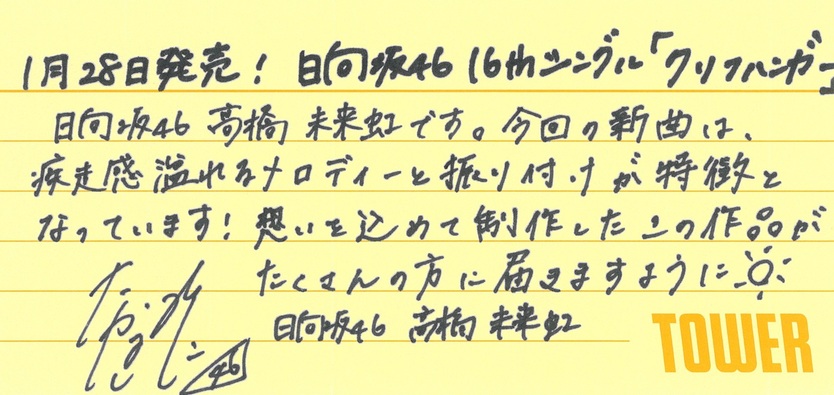 1月28日発売! 日向坂46 16thシングル「クリフハンガー」
日向坂46 高橋未来虹です。今回の新曲は、
疾走感溢れるメロディーと振り付けが特徴と
なっています!想いを込めて制作したこの作品が
たくさんの方に届きますように
日向坂46 高橋未来虹
46
TOWER